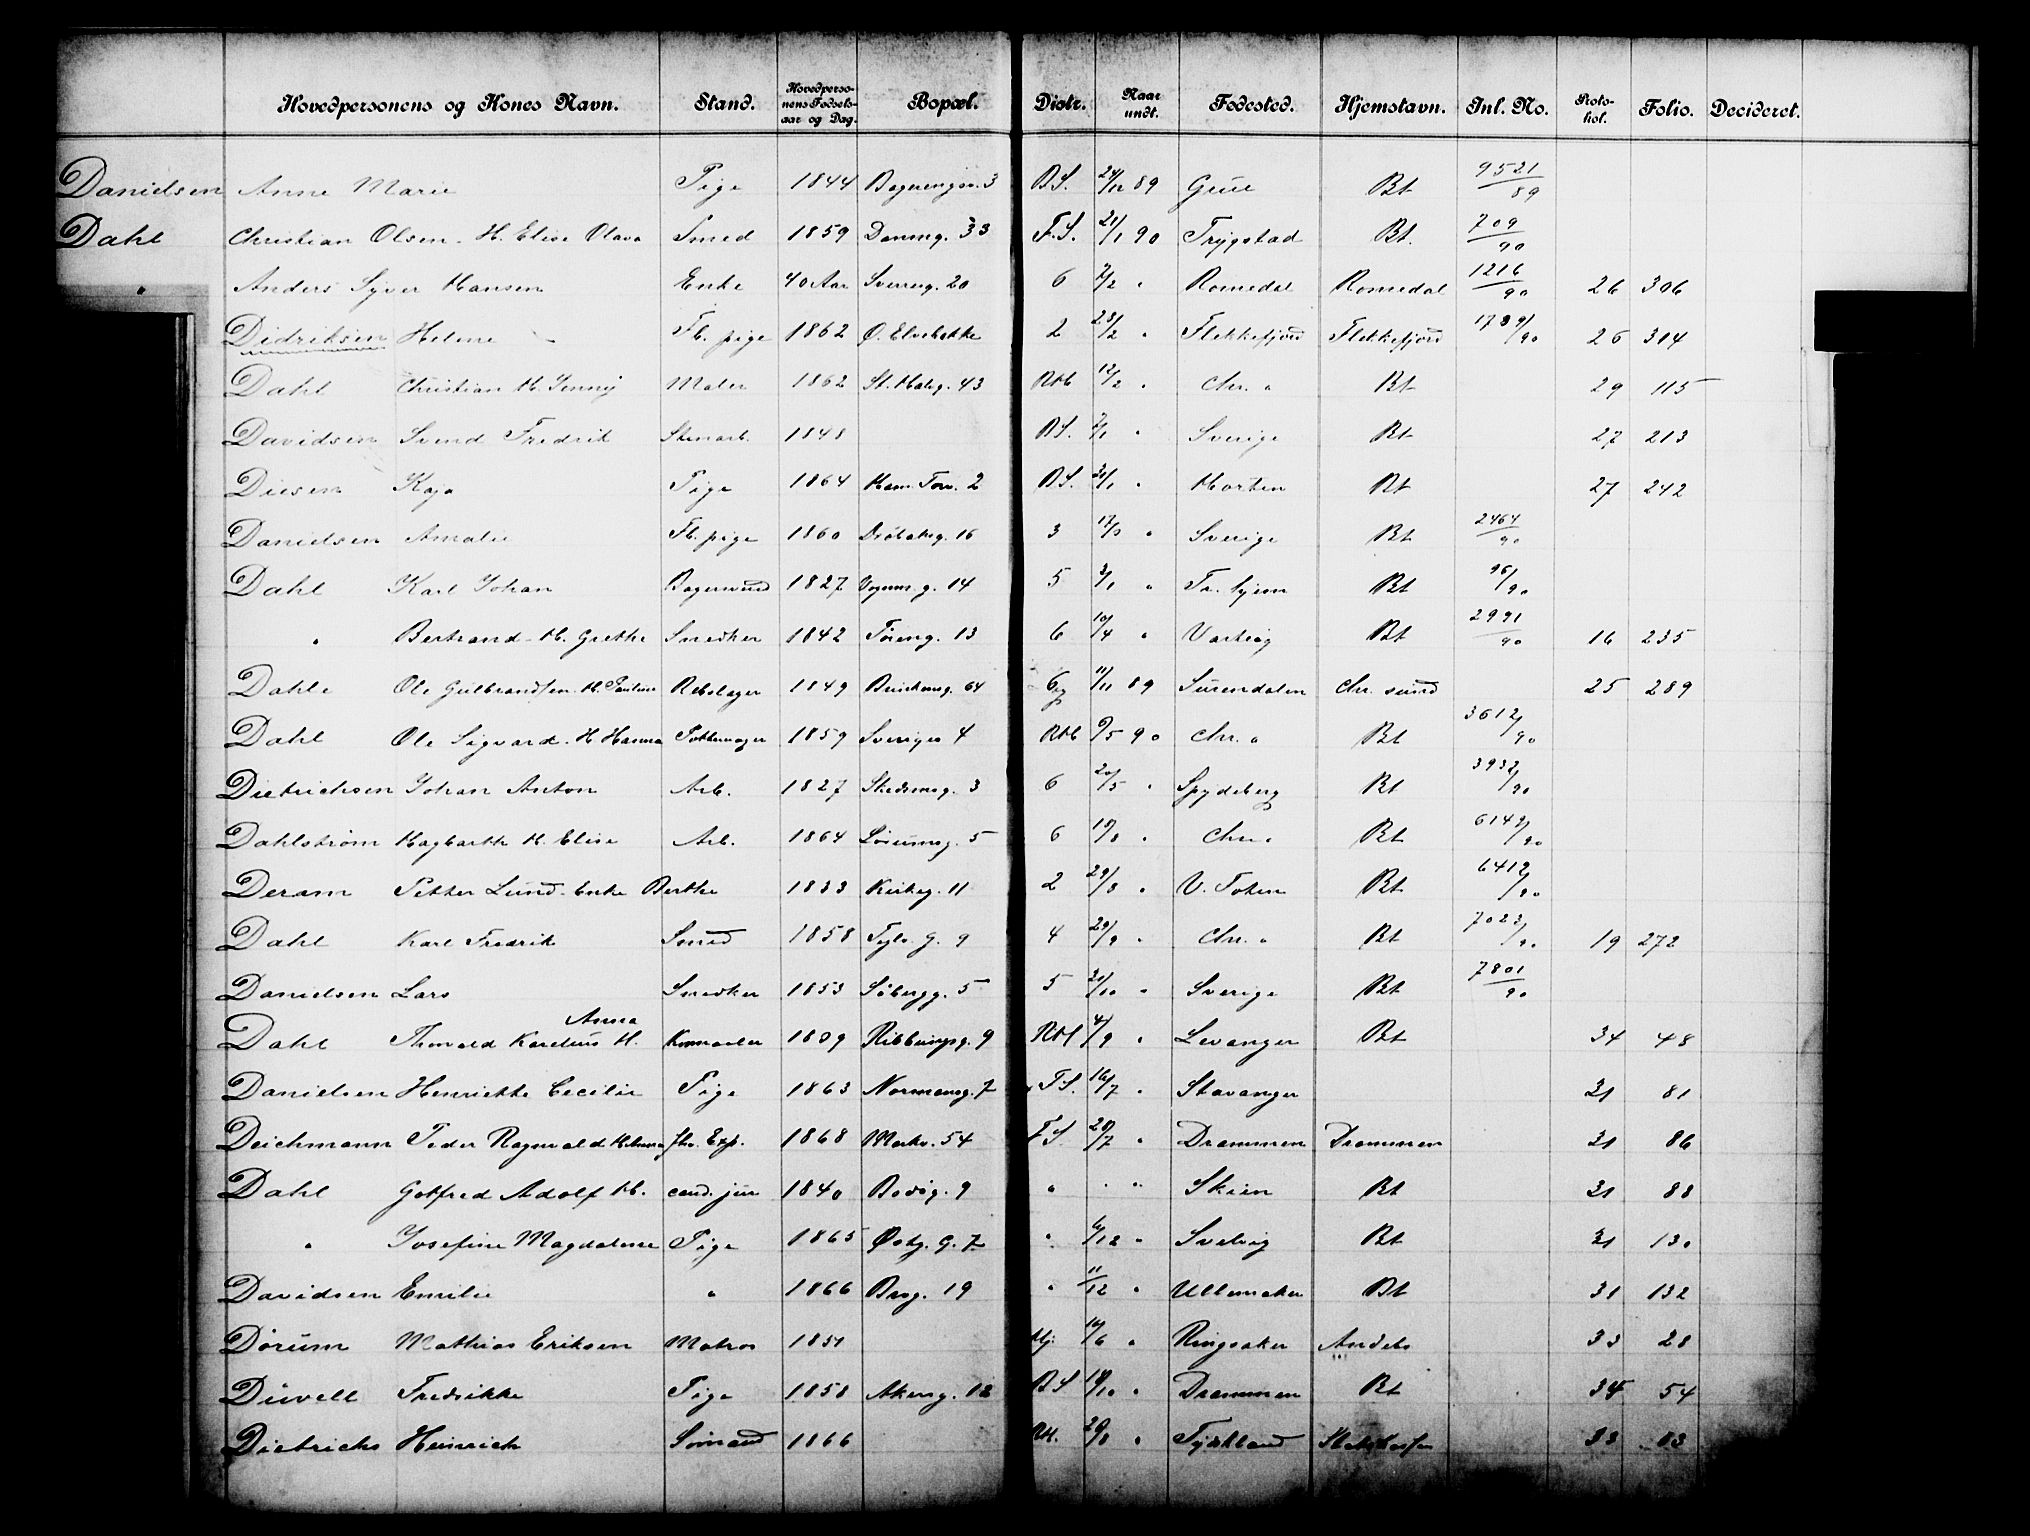 Hovedpersonens og Kones Navn. Stand. Hovedpersonens Fødselsaar og Dag. Bopæl. Distr. Naar undt. Fødested. Hjemstavn. Inl. No. Protokol. Folio. Decideret.
Danielsen Anne Marie Pige 1844 3 B.S. 24/12 89 Grue Bt 9521/89
Dahl Christian Olsen. H. Elise Olava Smed 1859 Danmg. 33 F.S. 21/1 90 Trygstad Bt. 709/90
" Anders Syver Hansen Enke 40 Aar Sverreg. 20 6 Romedal Romedal 1216/90 26 306
Didriksen Helene Fb. pige 1862 Ø. Elvebakke 2 23/2 " Flekkefjord Flekkefjord 1789/90 26 314
Dahl Christian H. Jenny Maler 1862 St. Halvg. 43 RM 12/2 " Chr. " Bt 29 115
Davidsen Svend Fredrik Stenarb. 1848 B.S. " Sverige Bt 27 213
Diesen Kaja Pige 1864 Ham. Torv. 2 B.S. 31/1 " Horten Bt 27 242
Danielsen Amalie Fb. pige 1860 Drøbaksg. 16 3 " Sverige Bt 2464/90
Dahl Karl Johan Bagersvend 1827 Vognm. g. 14 5 3/1 " Tr. hjem Bt 96/90
" Bertrand H. Grethe Snedker 1842 Tøieng. 13 6 10/4 " Varteig Bt 2991/90 16 235
Dahle Ole Gulbrandsen H. Pauline Rebslager 1849 64 6 11/11 89 Surendalen Chr. sund 25 289
Dahl Ole Sigvard. H Hanna Pottemager 1859 Sverigeg 4 RM 9/5 90 Chr. " Bt 3612/90
Dietrichsen Johan Anton Arb. 1827 Skedsmog. 3 6 20/5 " Spydeberg Bt 3932/90
Dahlstrøm Hagbarth H. Elise Arb. 1864 Sørumsg. 5 6 " Chr. " Bt 6149/90
Deram Petter Lund. Enke Berthe 1833 Kirkeg. 11 2 29/8 " V. Toten Bt 6412/90
Dahl Karl Fredrik Smed 1858 Teglv. G. 9 4 29/9 " Chr. " Bt 7023/90 19 272
Danielsen Lars Snedker 1853 Søbergg. 5 5 31/10 " Sverige Bt 7801/90
Anna
Dahl Thorvald Karelius H. 9 RM " Levanger Bt 34 48
Danielsen Henriette Cecilie Pige 1863 Normansg. 7 F.S. 16/7 " Stavanger 31 81
Deichmann Peder Ragnvald Exp. 1868 Markv. 54 F.S. 28/7 " Drammen Drammen 31 86
Dahl Gotfred Adolf H. cand. jur 1840 9 " " " Skien Bt 31 88
" Josefine Magdalene Pige 1865 Østg. G. 7 " 6/12 " Svelvig Bt 31 130
Davidsen Emilie " 1866 19 " 11/12 " Ullensaker Bt 31 132
Dørum Mathias Eriksen Matros 1851 16/6 " Ringsaker Andebo 33 28
Düvell Fredrikke Pige 1858 Akersg. B.S " Drammen Bt 34 54
Dietrichs Heinrich Sømand 1866 " Tydskland 33 83